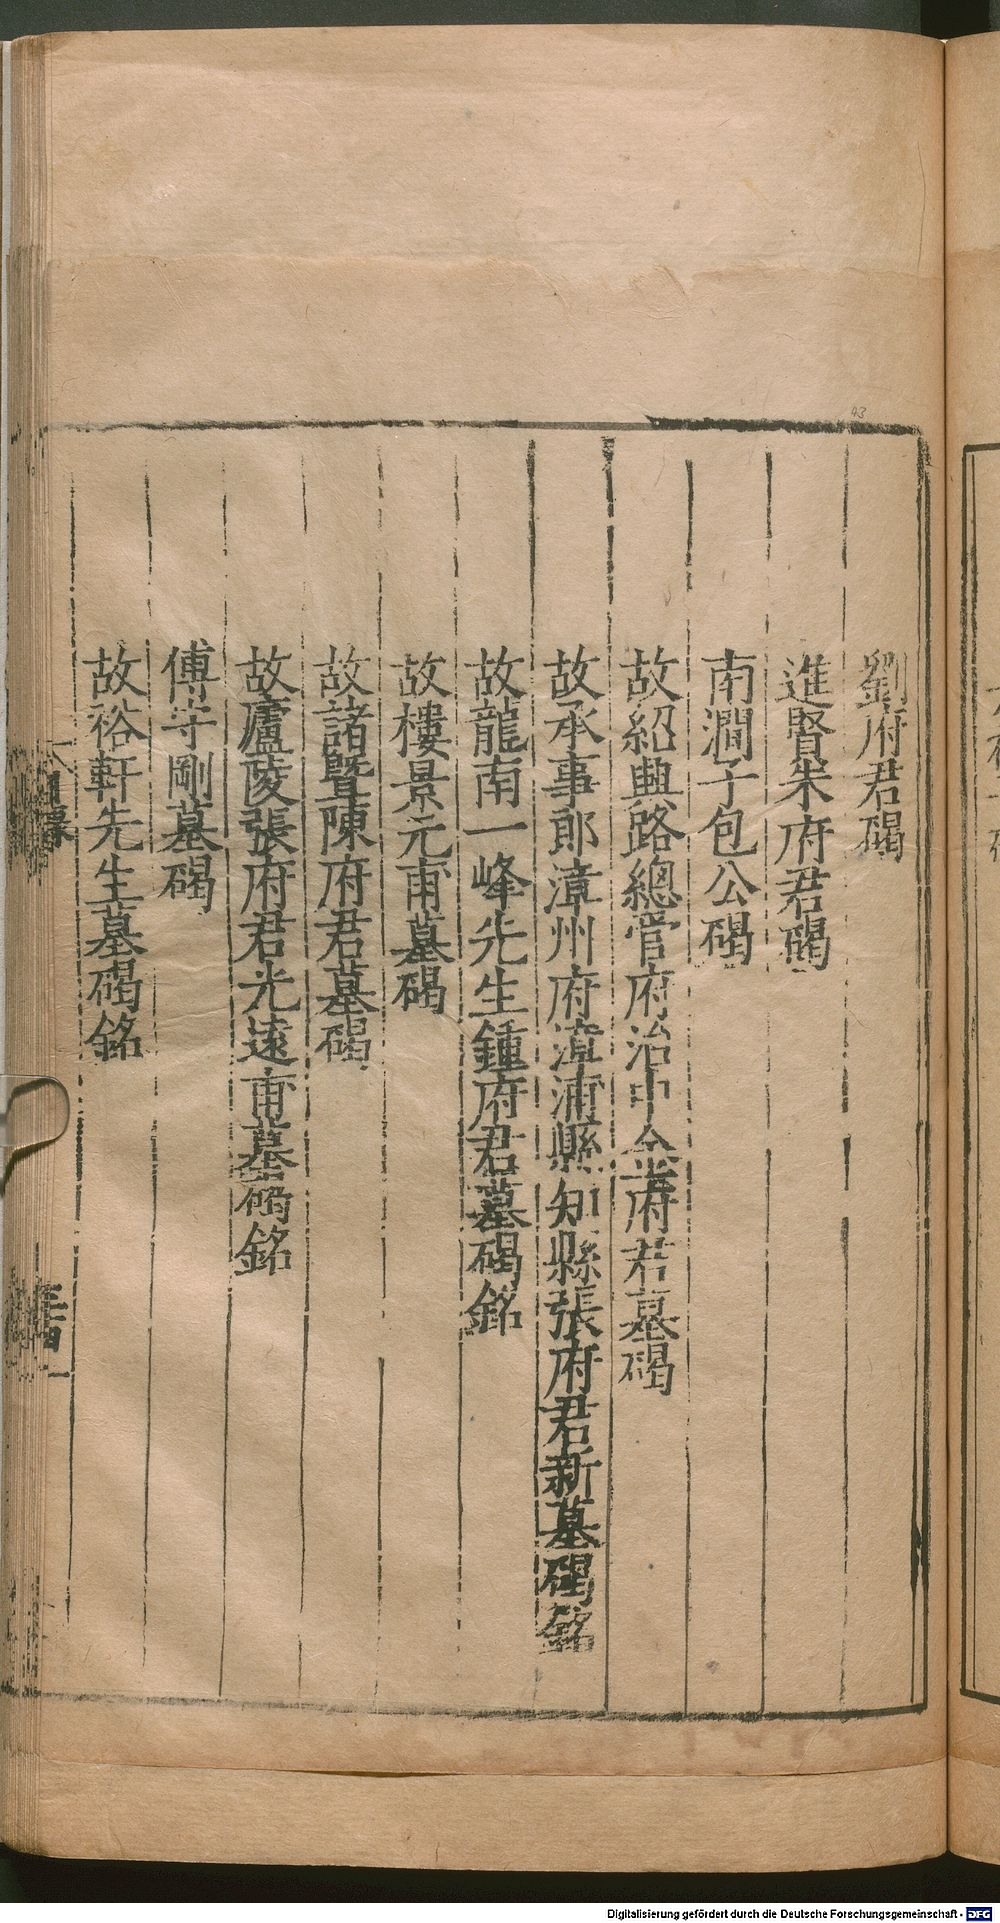 劉府君碣
進賢朱府君碣
南澗子包公碣
故紹興路總管府治中金府君墓碣
故承事郎漳州府漳浦縣知縣張府君新墓碣銘
故龍南一峰先生鍾府君墓碣銘
故樓景元甫墓碣
故諸曁陳府君墓碣
故廬陵張府君光遠甫墓碣銘
傅守剛墓碣
故裕軒先生墓碣銘
目錄
43
Digitalisierung gefördert durch die Deutsche Forschungsgemeinschaft - DFG